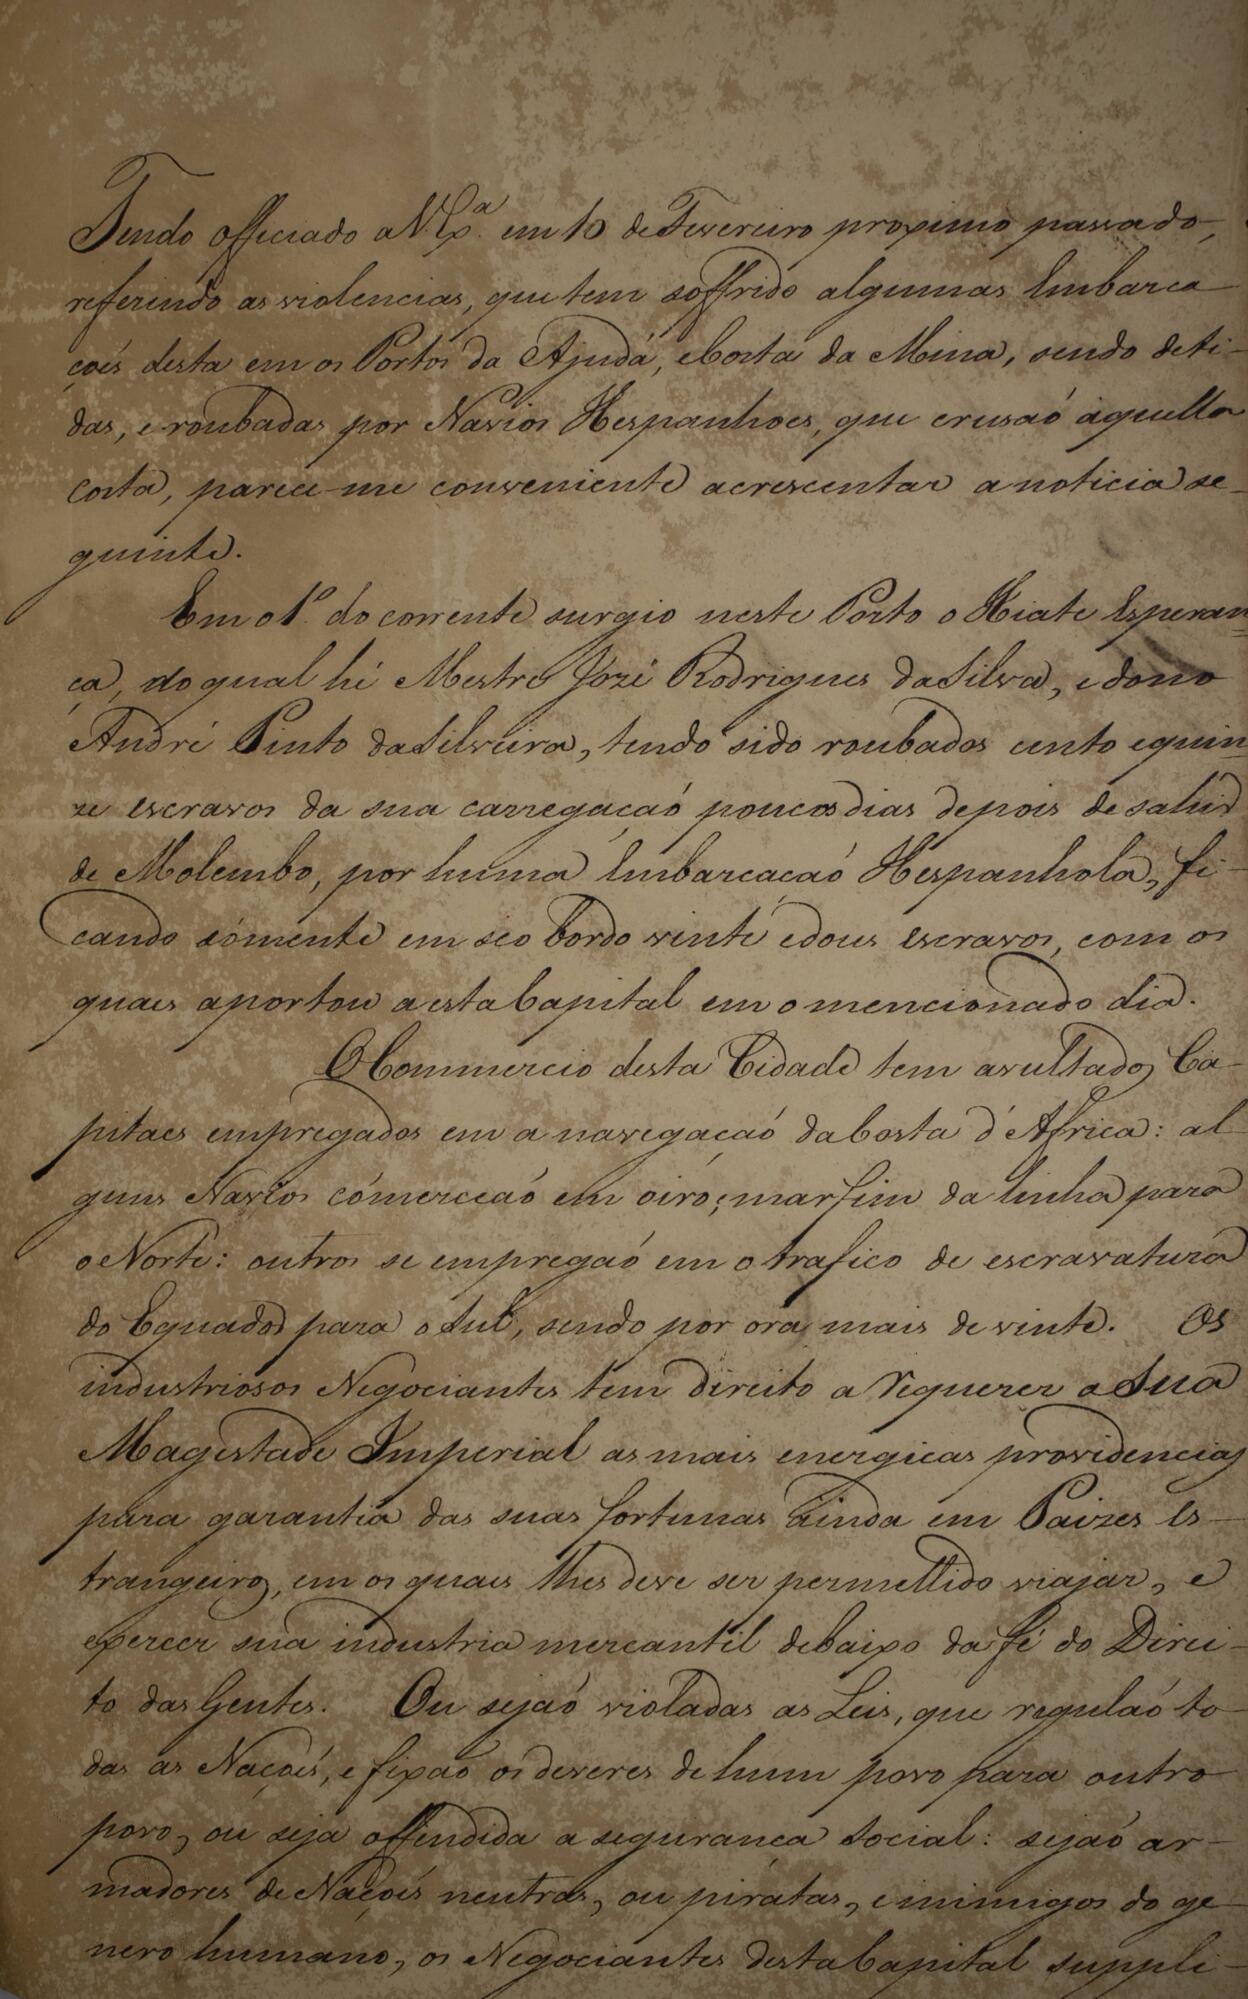 Tendo officiado a V. Exª. em 10 de Fevereiro proximo passado,
referindo as violencias, que tem soffrido algumas Embarca
çoẽs desta em os Portos da Ajudá, e Costa da Mina, sendo deti-
das, e roubadas por Navios Hespanhoes, que crusaõ aquella
Costa, parece-me conveniente acrescentar a noticia se-
guinte.
Em o 1º. do corrente surgio neste Porto o Hiate Esperan=
ça, do qual hé Mestre Jozé Rodrigues da Silva, e dono
André Pinto da Silveira, tendo sido roubados cento e quin=
ze escravos da sua carregaçaõ poucos dias depois de sahir
de Molembo, por huma Embarcaçaõ Hespanhola, fi-
cando sómente em seo bordo vinte e dous escravos, com os
quais aportou a esta Capital em o mencionado dia.
O Commercio desta Cidade tem avultados Ca-
pitaes empregados em a navegaçaõ da Costa d'Africa: al
guns Navios cómerceaõ em oiro, marfim da linha para
o Norte: outros se empregaõ em o trafico de escravatura
do Equador para o Sul, sendo por ora mais de vinte. Os
industriosos Negociantes tem direito a requerer a Sua
Magestade Imperial as mais energicas providencias
para garantia das suas fortunas ainda em Paizes Es-
trangeiros, em os quais lhes deve ser permettido viajar, e
exercer sua industria mercantil debaixo da fé do Direi-
to das Gentes. Ou sejaõ violadas as Leis, que regulaõ to-
das as Naçoẽs, e fixaõ os deveres de hum povo para outro
povo, ou seja offendida a segurança social: sejaõ ar-
madores de Naçoẽs neutras, ou piratas, e inimigos do ge-
nero humano, os Negociantes desta Capital suppli-